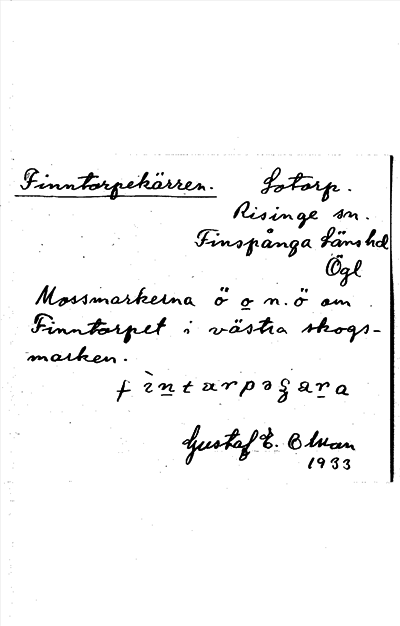 Finntorpekärren. Lotorp.
Risinge sn.
Finspånga länshd
Ögl
Mossmarkerna ö o n.ö om
Finntorpet i västra skogs-
marken.
Gustaf E.
1933